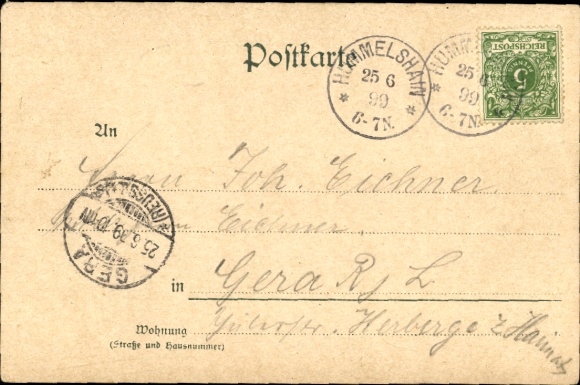 Postkarte
HUMMELSHAIN
25 6
99
6-7N.
HUMM
25 6
99
6-7N.
REICHSPOST
5
PFENNIG
An
Herrn Joh. Eichner
Eichner
GERA
25.6.99.
in Gera R j L
Herberge z Heimat
Wohnung
(Straße und Hausnummer)